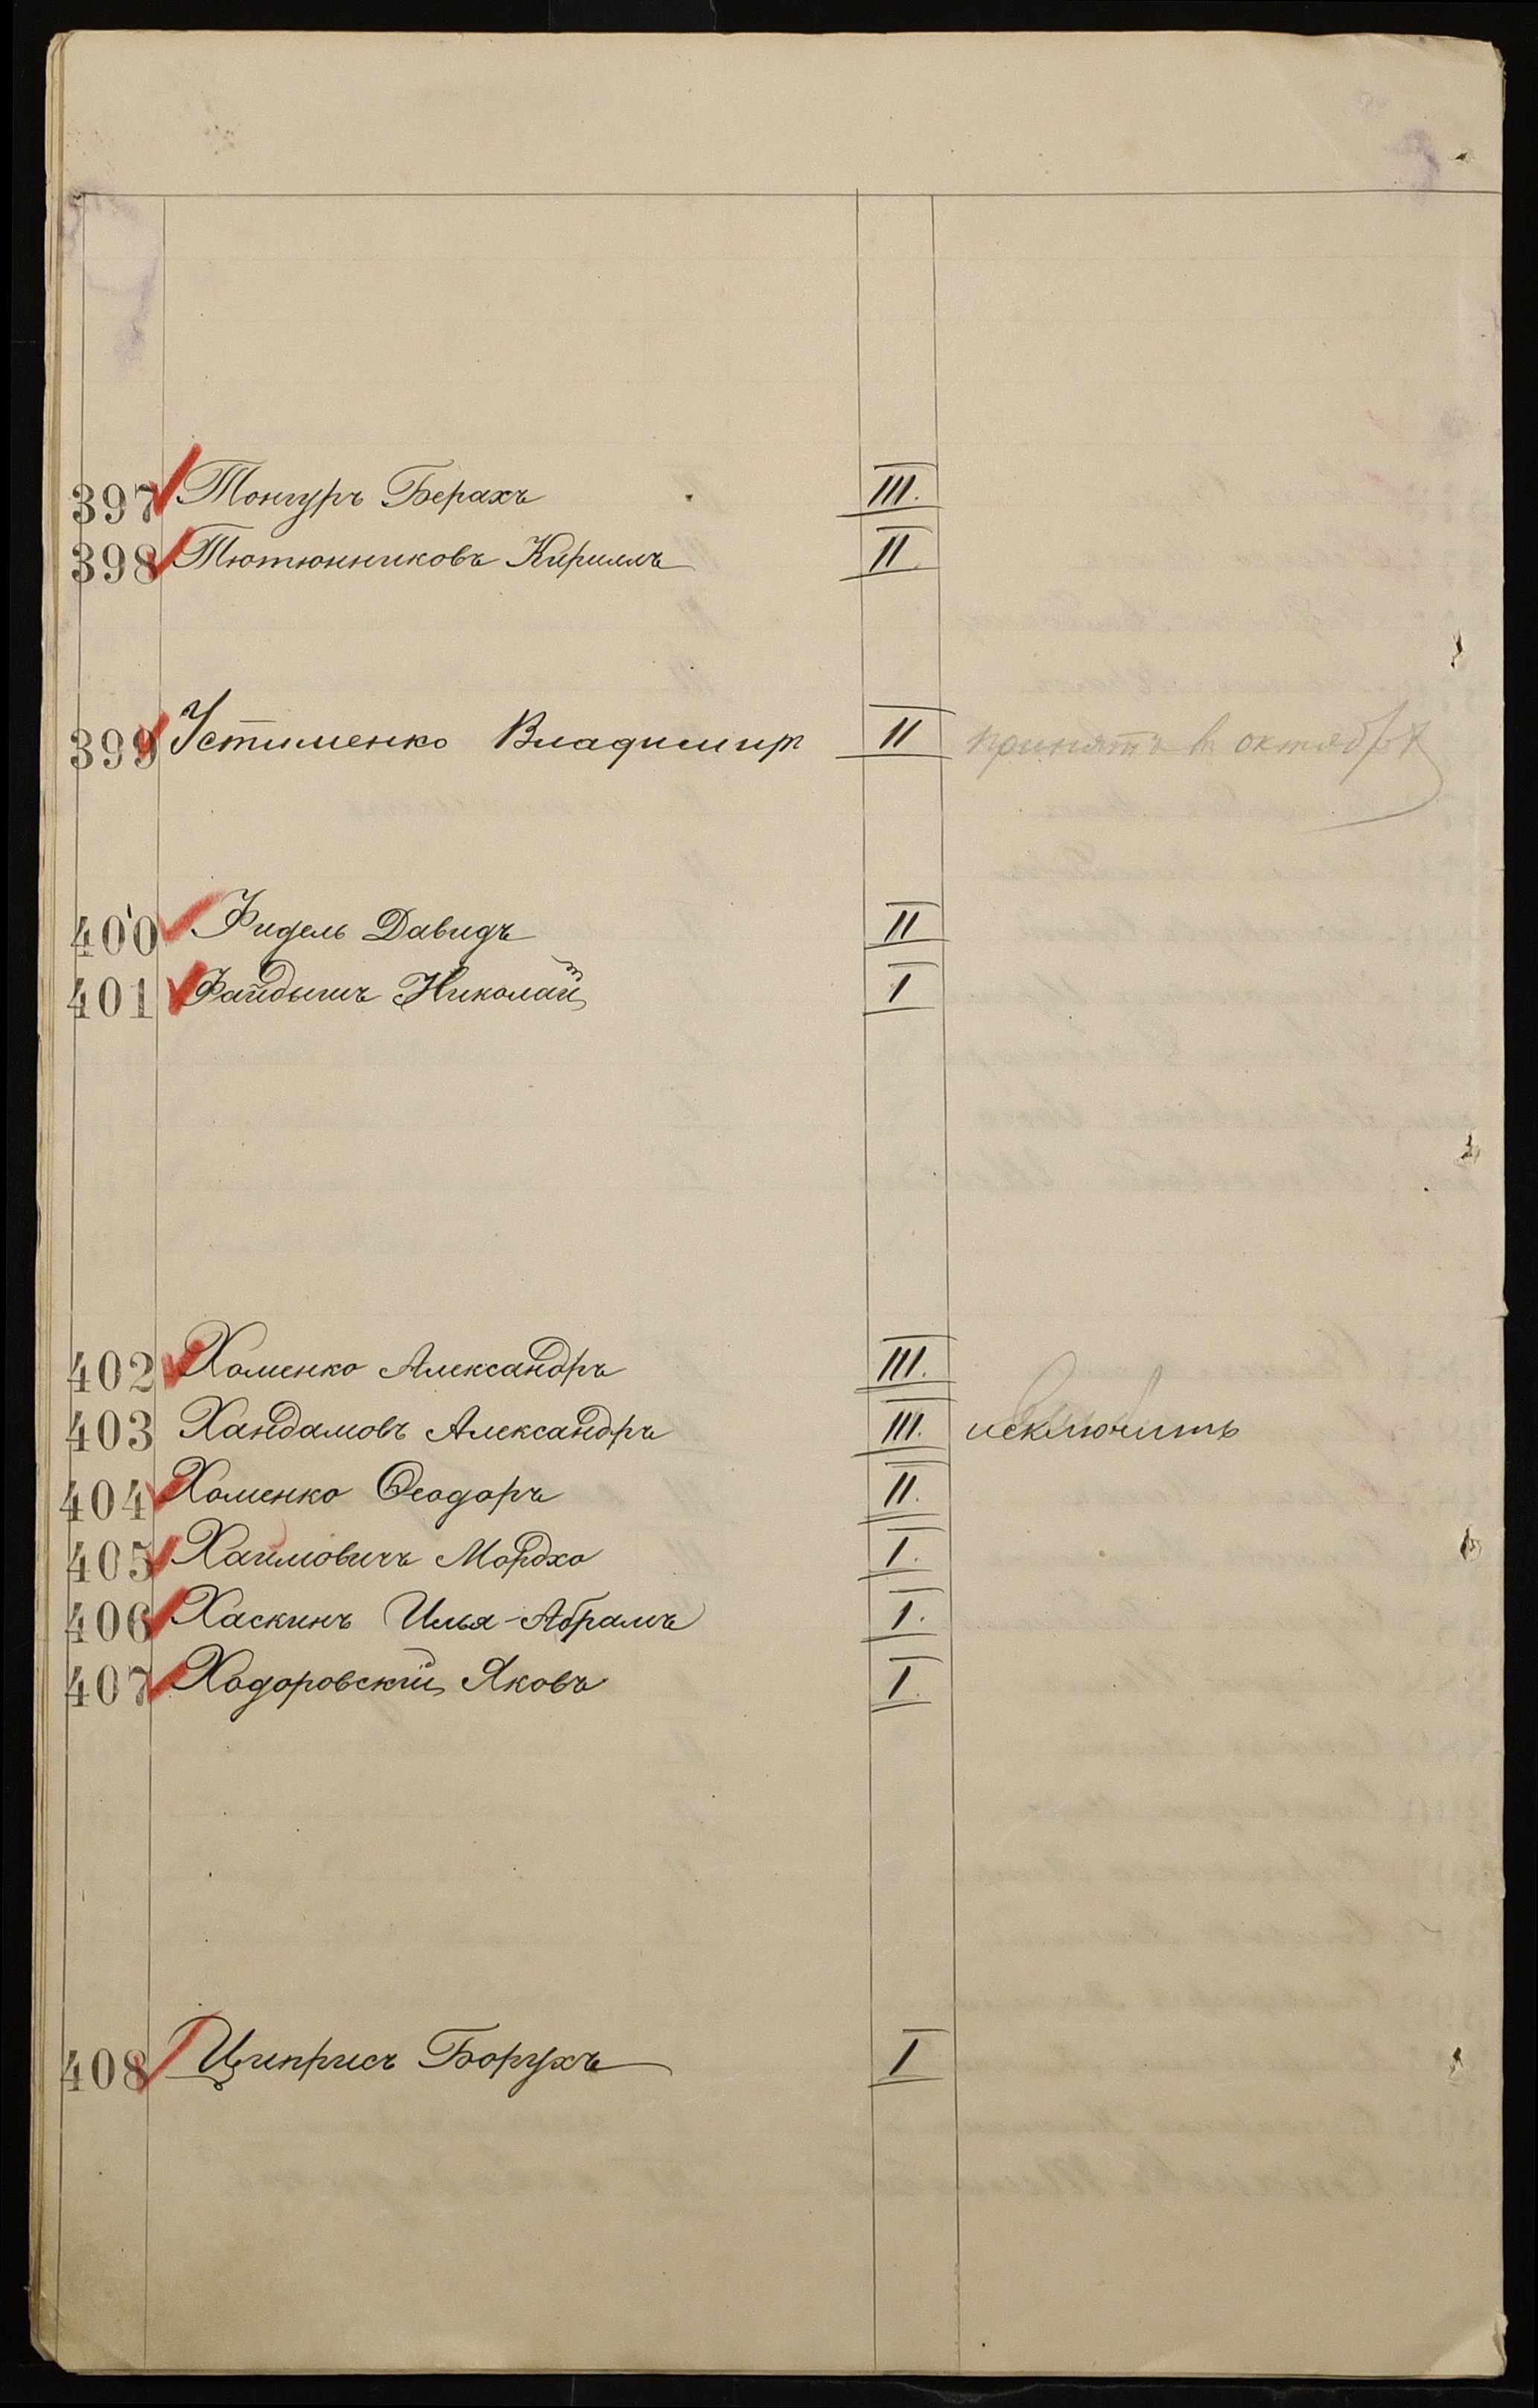 397 Тонгуръ Берахъ III.
398 Тютюнниковъ Кириллъ II.
399 Устименко Владимир II принятъ в октябрѣ
400 Фидель Давидъ II
401 Файдышъ Николай I
402 Хоменко Александръ III.
403 Хандамовъ Александръ III. исключить
404 Хоменко Ѳеодоръ II.
405 Хаимовичъ Мордхо I.
406 Хаскинъ Илья-Абрамъ I.
407 Ходоровскій Яковъ I.
408 Циприсъ Борухъ I